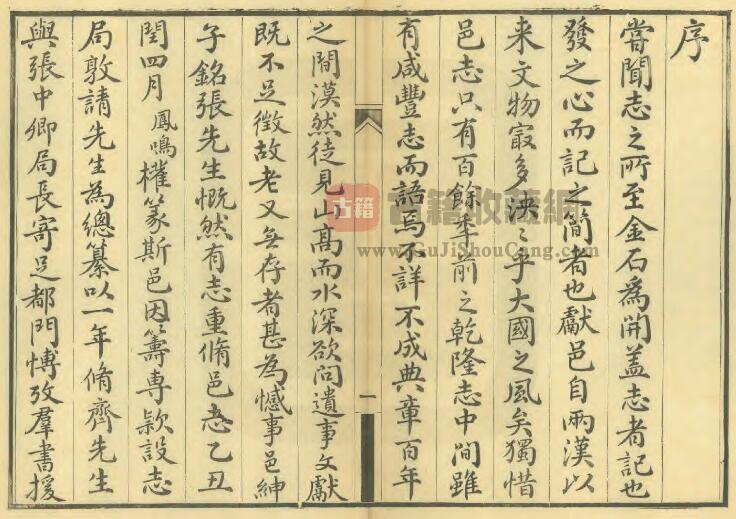 序
嘗聞志之所至金石爲開蓋志者記也
發之心而記之簡者也獻邑自兩漢以
来文物㝡多泱〻乎大國之風矣獨惜
邑志只有百餘年前之乾隆志中間雖
有咸豐志而語焉不詳不成典章百年
之間漠然徒見山高而水深欲问遺事文獻
既不足徵故老又無存者甚為憾事邑紳
子銘張先生慨然有志重脩邑志乙丑
閏四月鳳鳴權篆斯邑因籌專款設志
局敦請先生為總纂以一年脩齊先生
與張中卿局長寄足都門博攷羣書援
一
古籍
古籍收藏網
www.GuJiShouCang.com